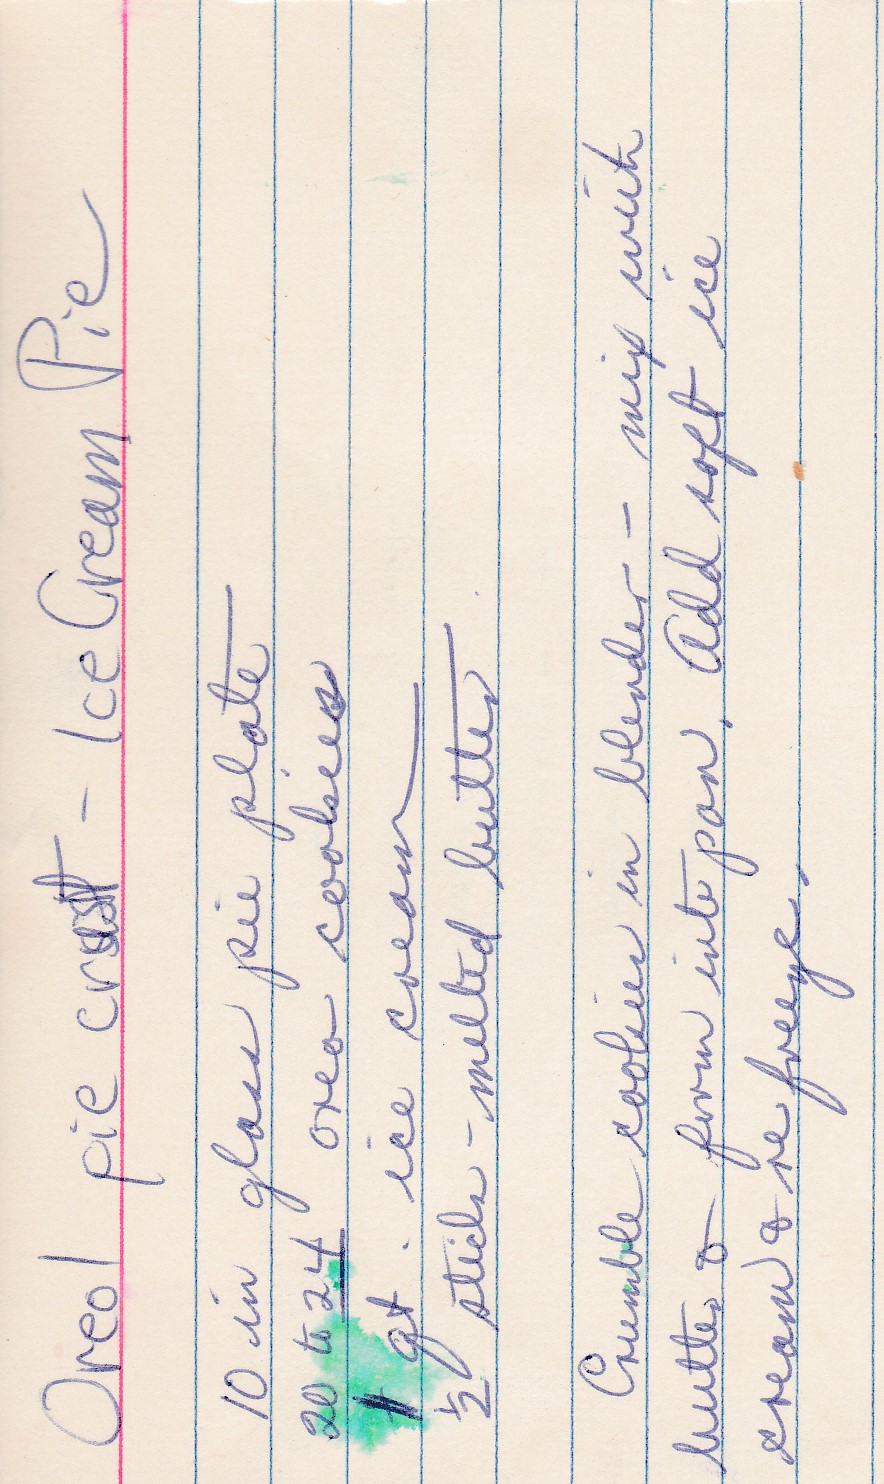 Oreo pie crust - Ice Cream Pie
10 in glass pie plate
20 to 24 oreo cookies
1 qt. ice cream
1/2 stick - melted butter
Crumble cookies in blender - mix with
butter & form into pan. Add soft ice
cream & re freeze.